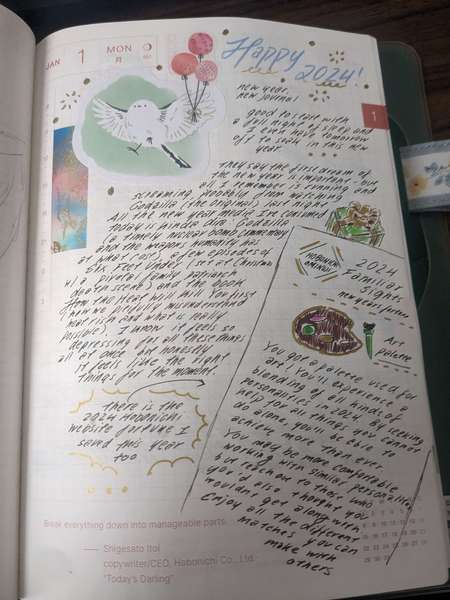 JAN 1 MON
月
Happy
2024!
new year.
new journal
good to start with
a full night of sleep and
I even have tomorrow
off to soak in this new
year.
1
They say the first dream of
the new year is important - but
all I remember is running and
screaming probably from watching
Godzilla (the original) last night
All the new year media I've consumed
today is kinda dim Godzilla
(a timely nuclear bomb commentary
and the weapons humanity has
at what cost), a few episodes of
Six Feet Under (I'm at Christmas
w/ a pivotal family patriarch
death scene) and the book
How the Heat Will Kill You First
(how we pitifully misunderstand
that risk and what is really
possible). I know it feels so
depressing for all these things
all at once but honestly
it feels like the right
things for the moment.
there is the
2024 Hobonichi
website fortune I
saved this year
too
HOBONICHI
OMIKUJI
2024
Familiar
Sights
new year fortune
Art
palette
You got a palette used for
art! You'll experience a
blending of all kinds of
personalities in 2024. By seeking
help for all things you cannot
do alone, you'll be able to
achieve more than ever.
You may be more comfortable
working with similar personalities,
but reach out to those who
you'd else thought you
wouldn't get along with.
Enjoy all the different
matches you can
make with
others
Break everything down into manageable parts.
— Shigesato Itoi
copywriter/CEO, Hobonichi Co., Ltd.
"Today's Darling"